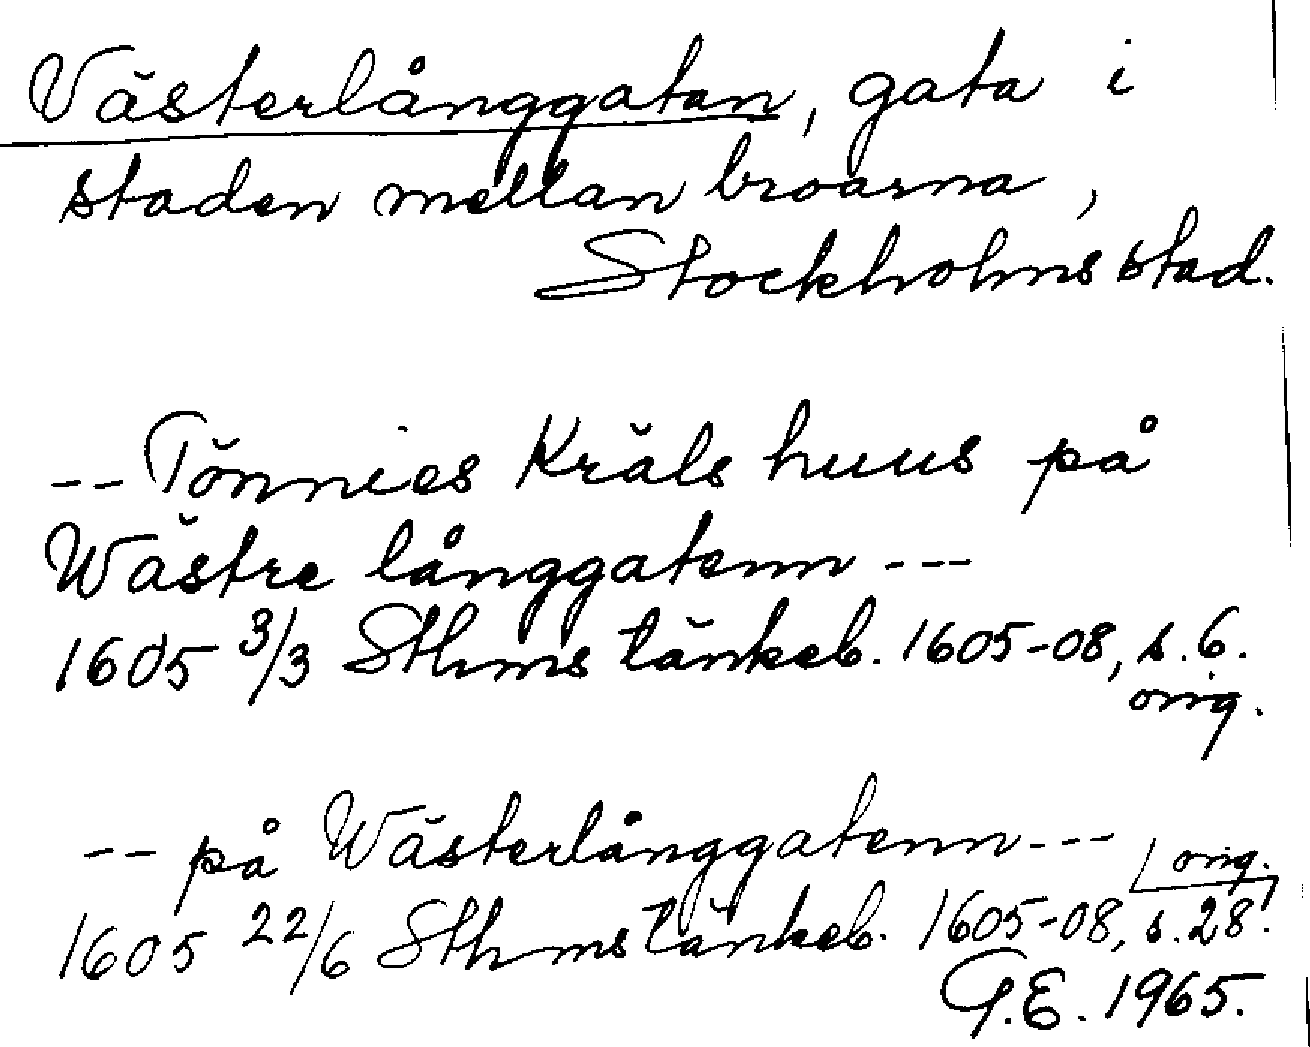 Västerlånggatan, gata i
staden mellan broarna,
Stockholms stad.
-- Tönnies Kräls huus på
Wästre långgatenn ---
1605 3/3 Sthms tänkeb. 1605-08, s. 6.
orig.
-- på Wästerlånggatenn ---
orig.
1605 22/6 Sthms tänkeb. 1605-08, s. 28.
G.E. 1965.